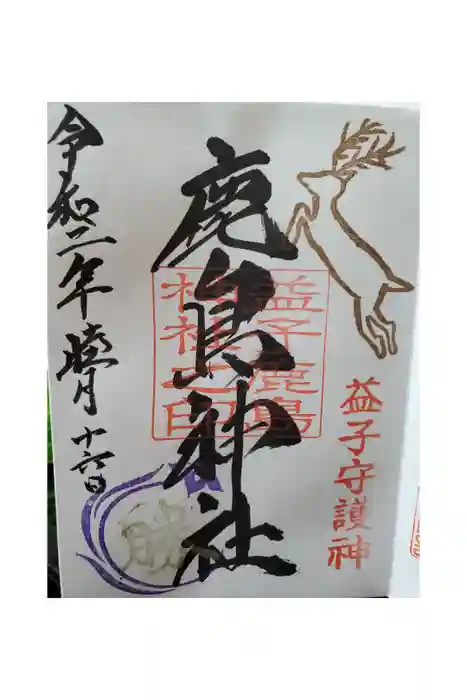 益子守護神
鹿島神社
益子鹿島
神社之印
勝
令和二年睦月十六日